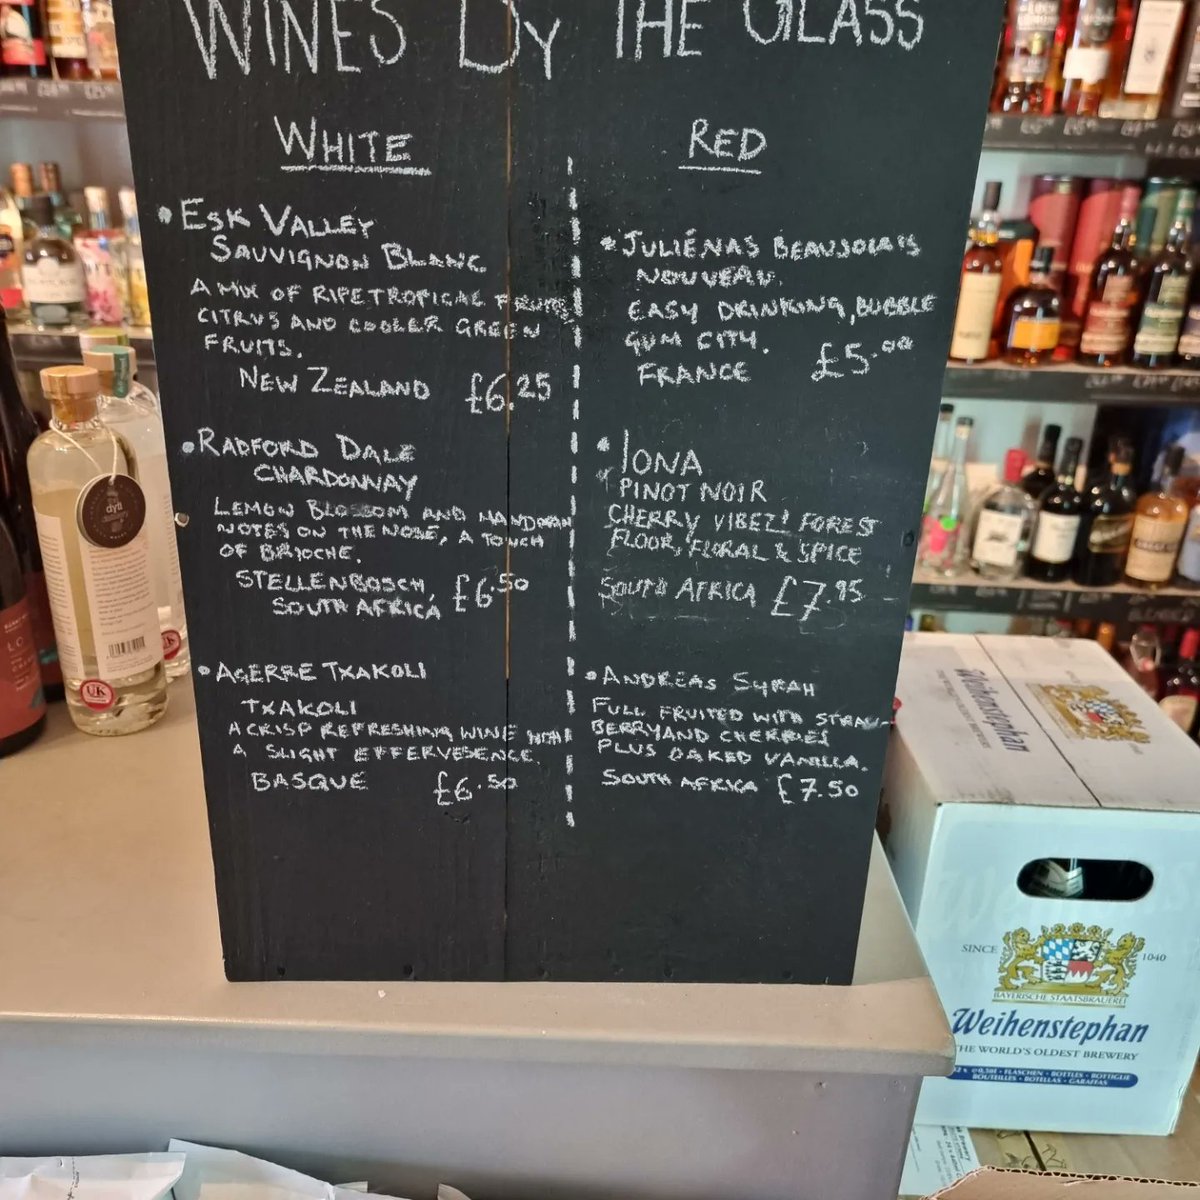 WINES BY THE GLASS
WHITE
• ESK VALLEY
SAUVIGNON BLANC
A MIX OF RIPE TROPICAL FRUITS,
CITRUS AND COOLER GREEN
FRUITS.
NEW ZEALAND £6.25
• RADFORD DALE
CHARDONNAY
LEMON BLOSSOM AND MANDARIN
NOTES ON THE NOSE, A TOUCH
OF BRIOCHE.
STELLENBOSCH,
SOUTH AFRICA £6.50
• AGERRE TXAKOLI
TXAKOLI
A CRISP REFRESHING WINE WITH
A SLIGHT EFFERVESENCE.
BASQUE £6.50
RED
• JULIÉNAS BEAUJOLAIS
NOUVEAU.
EASY DRINKING, BUBBLE
GUM CITY.
FRANCE £5.00
• IONA
PINOT NOIR
CHERRY VIBEZ! FOREST
FLOOR, FLORAL & SPICE
SOUTH AFRICA £7.95
• ANDREAS SYRAH
FULL FRUITED WITH STRAW-
BERRY AND CHERRIES
PLUS OAKED VANILLA.
SOUTH AFRICA £7.50
dyfi
UK
Weihenstephan
SINCE 1040
BAYERISCHE STAATSBRAUEREI
Weihenstephan
THE WORLD'S OLDEST BREWERY
FLASCHEN • BOTTLES • BOTTIGLIE
BOUTEILLES • BOTELLAS • GARAFFAS